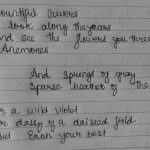 ountiful Givers
look along the years
And see the flowers you threw
Anemones
And sprigs of gray
Sparse heather of the
r a wild violet
or daisy of a daisied field
But Each your best